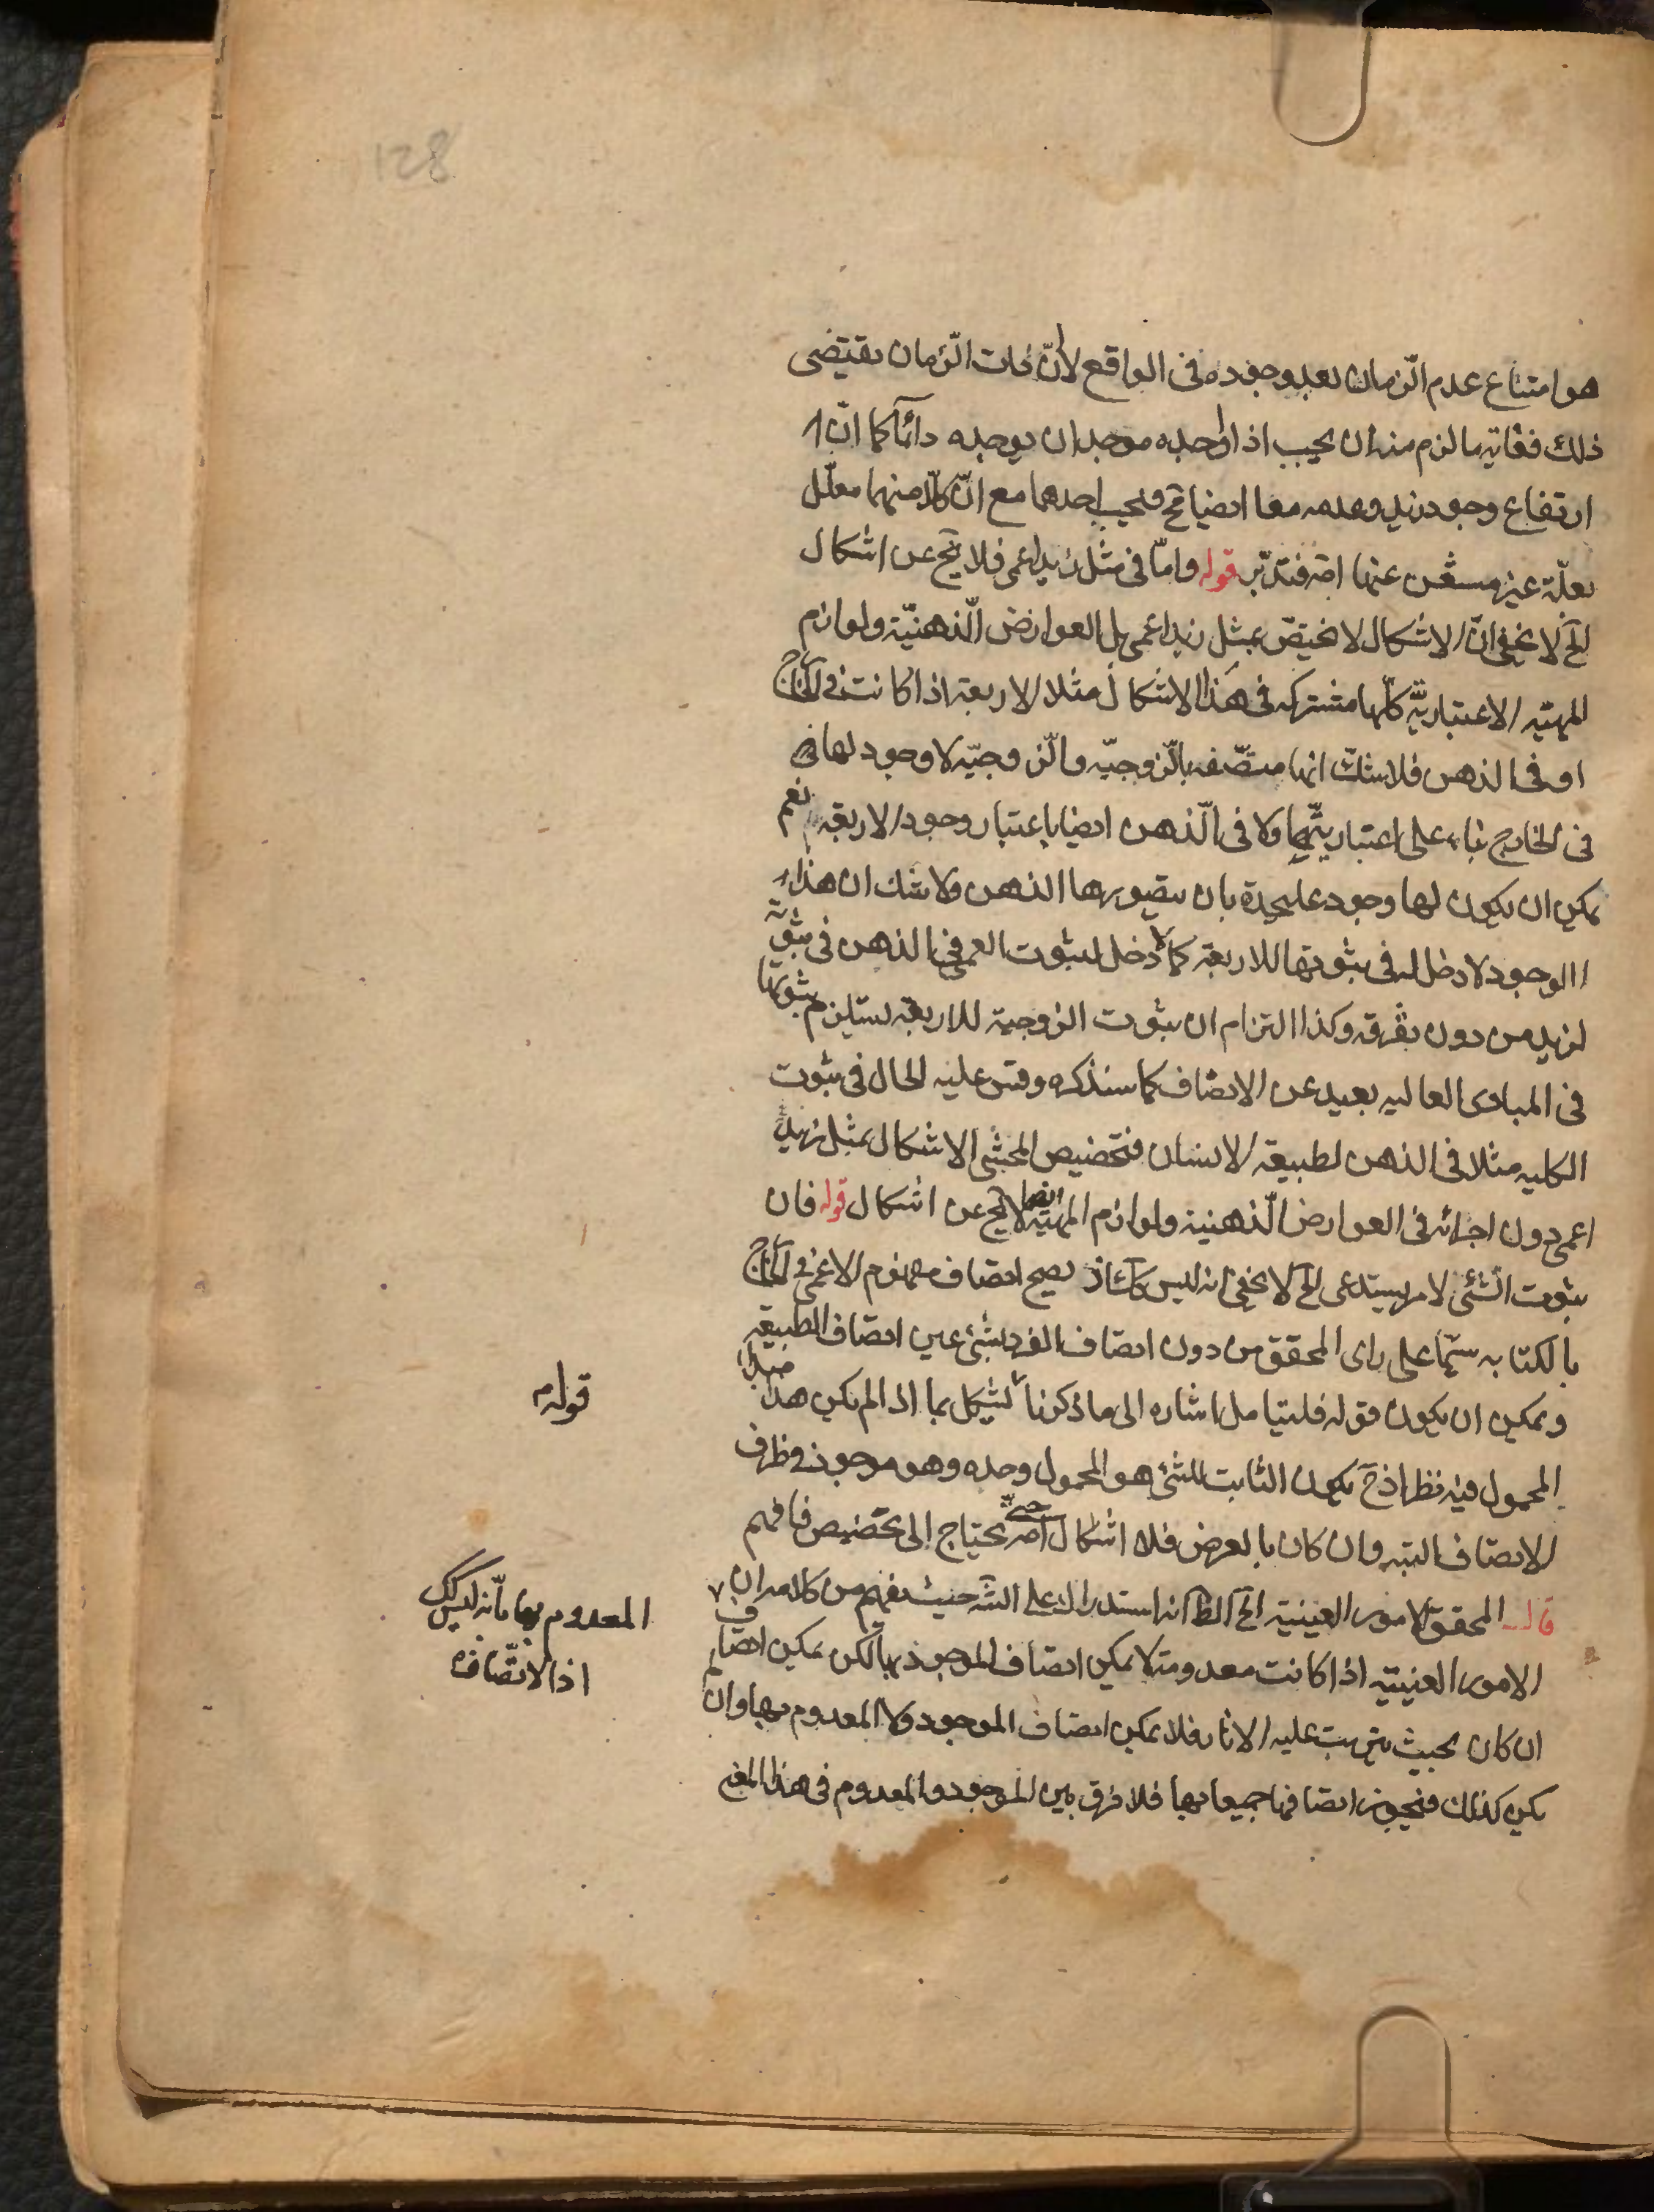 128
هو امتناع عدم الزمان بعد وجوده فى الواقع لأنّ ذات الزمان يقتضى
ذلك فغاية ما لزم منه ان يجب اذا اوجده موجد ان يوجده دائماً كما انّ
ارتفاع وجود زيد وعدمه معا ايضا مح فيجب احدهما مع انّ كلّا منهما معلّل
بعلّة غير مستغن عنها اصه فتدبّر قوله وامّا فى مثل زيد اعمى فلا يخ عن اشكال
الخ لا يخفى انّ الاشكال لا يختصّ بمثل زيد اعمى بل العوارض الذهنيّة ولوازم
المهيّه الاعتباريّه كلّها مشتركه فى هذا الاشكال مثلا الاربعة اذا كانت فى الخارج
او فى الذهن فلا شكّ انها متّصفه بالزوجيّه والزوجيّه لا وجود لها فى
فى الخارج بناء على اعتباريّتها ولا فى الذهن ايضا باعتبار وجود الاربعة نعم
يمكن ان يكون لها وجود عليحدة بان يتصورها الذهن ولا شك ان هذا
الوجود لا دخل له فى ثبوتها للاربعة كما لا دخل لثبوت العمى فى الذهن فى ثبوته
لزيد من دون تفرقه وكذا التزام ان ثبوت الزوجية للاربعة يستلزم ثبوتها
فى المبادى العاليه بعيد عن الانصاف كما سنذكره وقس عليه الحال فى ثبوت
الكليه مثلا فى الذهن لطبيعة الانسان فتخصيص المحشى الاشكال بمثل زيد
اعمى دون اجرائه فى العوارض الذهنية ولوازم المهيّة ايضا لا يخ عن اشكال قوله فان
ثبوت الشئ لامر يستدعى الخ لا يخفى انه ليس كك اذ يصح اتصاف مفهوم الاعمى فى الخارج
بالكتابه سيّما على راى المحقق من دون اتصاف الفرد بشئ عين اتصاف الطبيعة
ويمكن ان يكون قوله فليتامل اشاره الى ما ذكرنا لا يشكل بما اذا لم يكن هذا
المحمول فيه نظر اذ ح يكون الثابت للشئ هو المحمول وحده وهو موجود فى ظرف
الاتصاف البته وان كان بالعرض فلا اشكال اصه حتى يحتاج الى تخصيص فافهم
قال المحقق الامور العينية الخ الظ انه استدراك على الش حيث يفهم من كلامه ان
الامور العينيه اذا كانت معدومة لا يمكن اتصاف الموجود بها لكن يمكن اتصاف
ان كان بحيث يترتب عليه الاثار فلا يمكن اتصاف الموجود ولا المعدوم بها وان لم
يكن كذلك فيجوز اتصافها جميعا بها فلا فرق بين الموجود والمعدوم فى هذا المعنى
قوله
المعدوم بها بانه ليس كك
اذ الاتّصاف